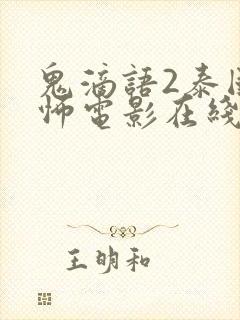 鬼滴語2泰
怖電影在綫
王明和